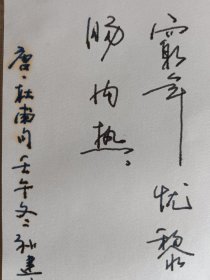 穷年忧黎
肠内热
唐·杜甫句 壬午冬